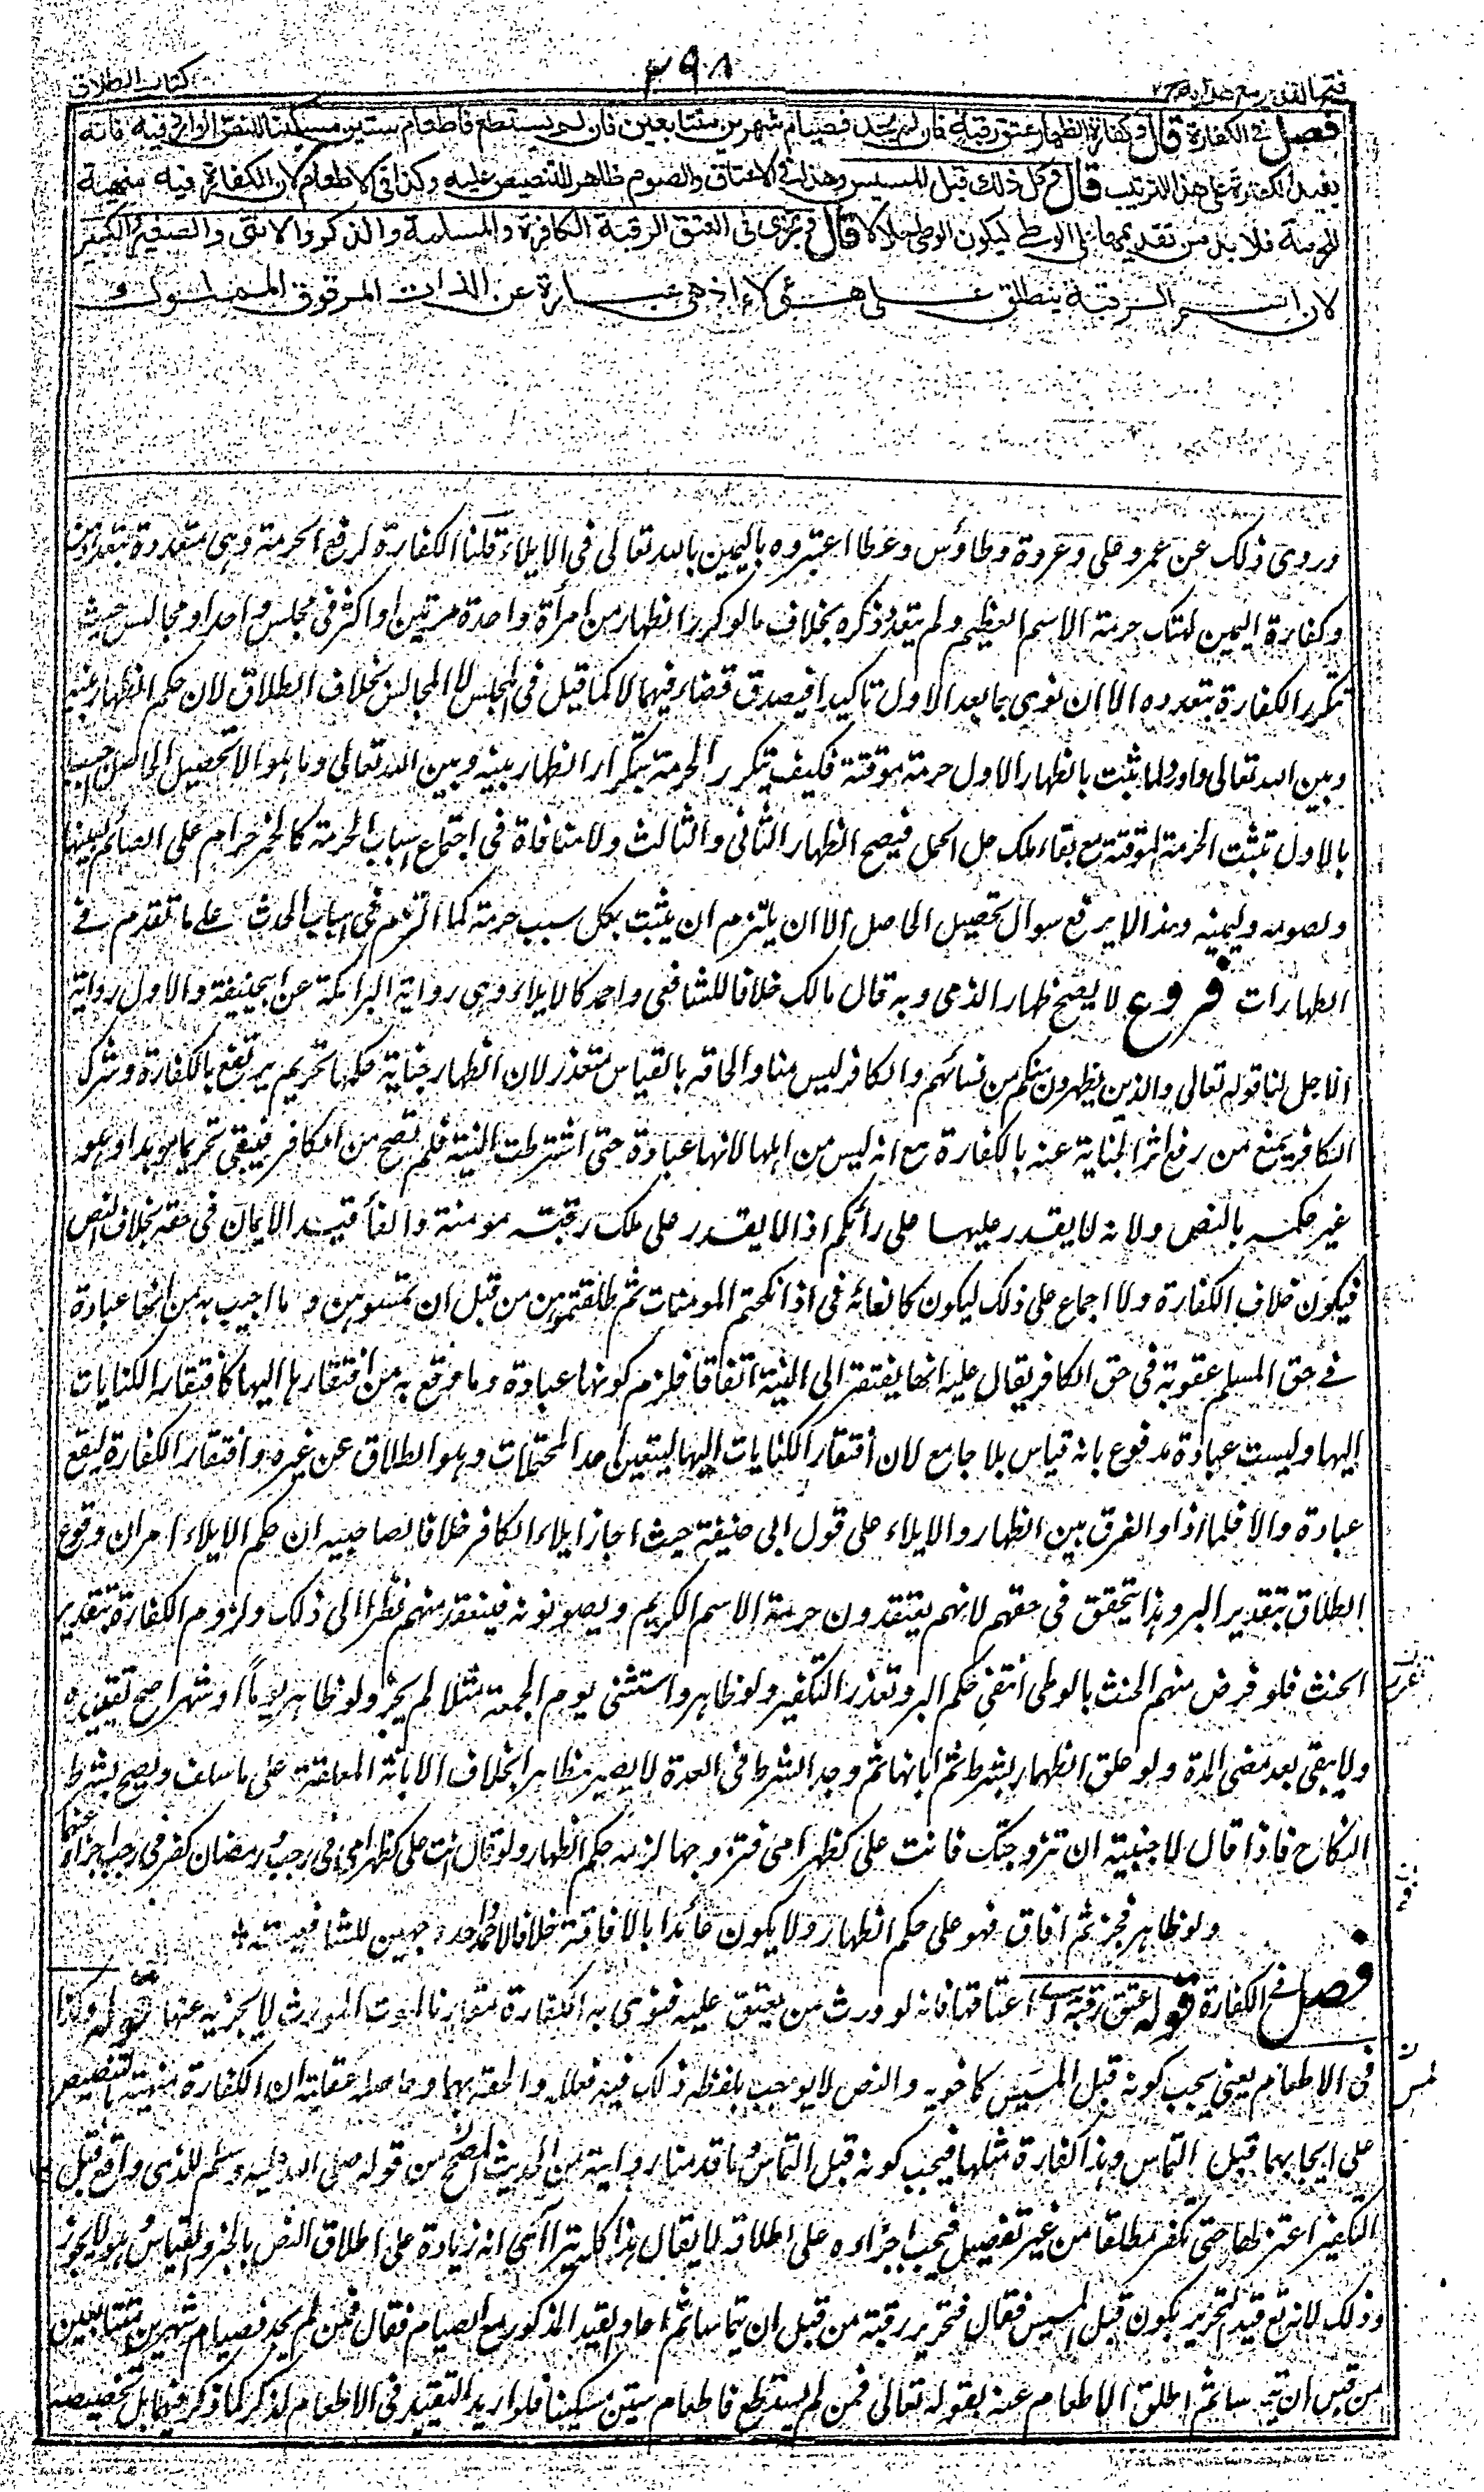 ٣٩٨
فتح القدير مع هداية ج ٢
كتاب الطلاق
فصل في الكفارة قال وكفارة الظهار عتق رقبة فان لم يجد فصيام شهرين متتابعين فان لم يستطع فاطعام ستين مسكينا للنص الوارد فيه فانه
يفيد الكفارة على هذا الترتيب قال وكل ذلك قبل المسيس وهذا في الاعتاق والصوم ظاهر للتنصيص عليه وكذا في الاطعام لان الكفارة فيه منهية
للحرمة فلا بد من تقديمها على الوطي ليكون الوطي حلالا قال ويجزى في العتق الرقبة الكافرة والمسلمة والذكر والانثى والصغير والكبير
لان اسم الرقبة ينطلق على هؤلاء اذ هي عبارة عن الذات المرقوق المملوك و
وروى ذلك عن عمر وعلى وعروة وطاؤس وعطا اعتبروه باليمين بالله تعالى في الايلاء قلنا الكفارة لرفع الحرمة وهى متعددة بتعددهن
وكفارة اليمين لهتك حرمة الاسم العظيم ولم يتعدد ذكره بخلاف ما لو كرر الظهار من امرأة واحدة مرتين او اكثر في مجلس واحد او مجالس حيث
تتكرر الكفارة بتعدده الا ان نوى بما بعد الاول تاكيدا فيصدق قضاء فيهما لا كما قيل في المجلس لا المجالس بخلاف الطلاق لان حكم الظهار بينه
وبين الله تعالى واورد لما ثبت بالظهار الاول حرمة موقتة فكيف تتكرر الحرمة بتكرار الظهار بينه وبين الله تعالى وما هو الا تحصيل الحاصل اجيب
بالاول تثبت الحرمة الموقتة مع بقاء ملك حل المحل فيصح الظهار الثانى والثالث ولا منافاة في اجتماع اسباب الحرمة كالخمر حرام على الصائم لعينها
ولصومه وليمينه وهذا لا يرفع سوال تحصيل الحاصل الا ان يلتزم ان يثبت بكل سبب حرمة كما التزم في اسباب الحدث على ما تقدم في
الطهارات فروع لا يصح ظهار الذمى وبه قال مالك خلافا للشافعى واحمد كالايلاء وهى رواية البرامكة عن ابى حنيفة والاول رواية
الاصل لنا قوله تعالى والذين يظهرون منكم من نسائهم والكافر ليس منا والحاقه بالقياس متعذر لان الظهار جناية حكمها تحريم يرتفع بالكفارة وشرك
الكافر يمنع من رفع اثر الجناية عنه بالكفارة مع انه ليس من اهلها لانها عبادة حتى اشترطت النية فلم تصح من الكافر فيبقى تحريما مؤبدا وهو
غير حكمه بالنص ولانه لا يقدر عليها على رائكم اذ لا يقدر على ملك رقبة مومنة والغاء قيد الايمان في حقه بخلاف النص
فيكون خلاف الكفارة ولا اجماع على ذلك ليكون كالغائه في اذا نكحتم المومنات ثم طلقتموهن من قبل ان تمسوهن وما اجيب به من انها عبادة
في حق المسلم عقوبة في حق الكافر يقال عليه انها يفتقر الى النية اتفاقا فلزم كونها عبادة وما وقع به من افتقارها اليها كافتقار الكنايات
اليها وليست عبادة مدفوع بانه قياس بلا جامع لان افتقار الكنايات اليها ليتعين احد المحتملات وهو الطلاق عن غيره وافتقار الكفارة ليقع
عبادة والا فلماذا والفرق بين الظهار والايلاء على قول ابى حنيفة حيث اجاز ايلاء الكافر خلافا لصاحبيه ان حكم الايلاء امران وقوع
الطلاق بتقدير البر وهذا يتحقق في حقهم لانهم يعتقدون حرمة الاسم الكريم ويصونونه فينعقد منهم نظرا الى ذلك ولزوم الكفارة بتقدير
الحنث فلو فرض منهم الحنث بالوطى انتفى حكم البر وتعذر التكفير ولو ظاهر واستثنى يوم الجمعة مثلا لم يجز ولو ظاهر يوما او شهرا صح تقييده
ولا يبقى بعد مضى المدة ولو علق الظهار بشرط ثم ابانها ثم وجد الشرط في العدة لا يصير مظاهرا بخلاف الابانة المعلقة على ما سلف ويصح بشرط
النكاح فاذا قال لاجنبية ان تزوجتك فانت على كظهر امى فتزوجها لزمه حكم الظهار ولو قال انت على كظهر امى في رجب ورمضان كفر في رجب اجزاه عنهما
ولو ظاهر فجن ثم افاق فهو على حكم الظهار ولا يكون عائدا بالافاقة خلافا لاحد وجهين للشافعية
فصل في الكفارة قوله عتق رقبة اى اعتاقها فانه لو ورث من يعتق عليه فنوى به الكفارة مقارنا لموت المورث لا يجزيه عنها قوله وكذا
في الاطعام يعنى يجب كونه قبل المسيس كاخويه والنص لا يوجب بلفظه ذلك فيه فعلله والحقه بهما وحاصله عقلية ان الكفارة منهية بالتنصيص
على ايجابهما قبل التماس وهذا كفارة مثلها فيجب كونه قبل التماس وما قدمنا رواية من الحديث المصحح من قوله صلى الله عليه وسلم للذى واقع قبل
التكفير اعتزلها حتى تكفر مطلقا من غير تفصيل فيجب اجراءه على اطلاقه لا يقال هذا كله يترا آى انه زيادة على اطلاق النص بالخبر والقياس وهو لا يجوز
وذلك لانه تع قيد التحرير بكون قبل المسيس فقال فتحرير رقبة من قبل ان يتماسا ثم اعاد القيد المذكور مع الصيام فقال فمن لم يجد فصيام شهرين متتابعين
من قبل ان يتماسا ثم اطلق الاطعام عنه بقوله تعالى فمن لم يستطع فاطعام ستين مسكينا فلو اريد التقييد في الاطعام لذكر كما ذكر فيهما بل تخصيصه